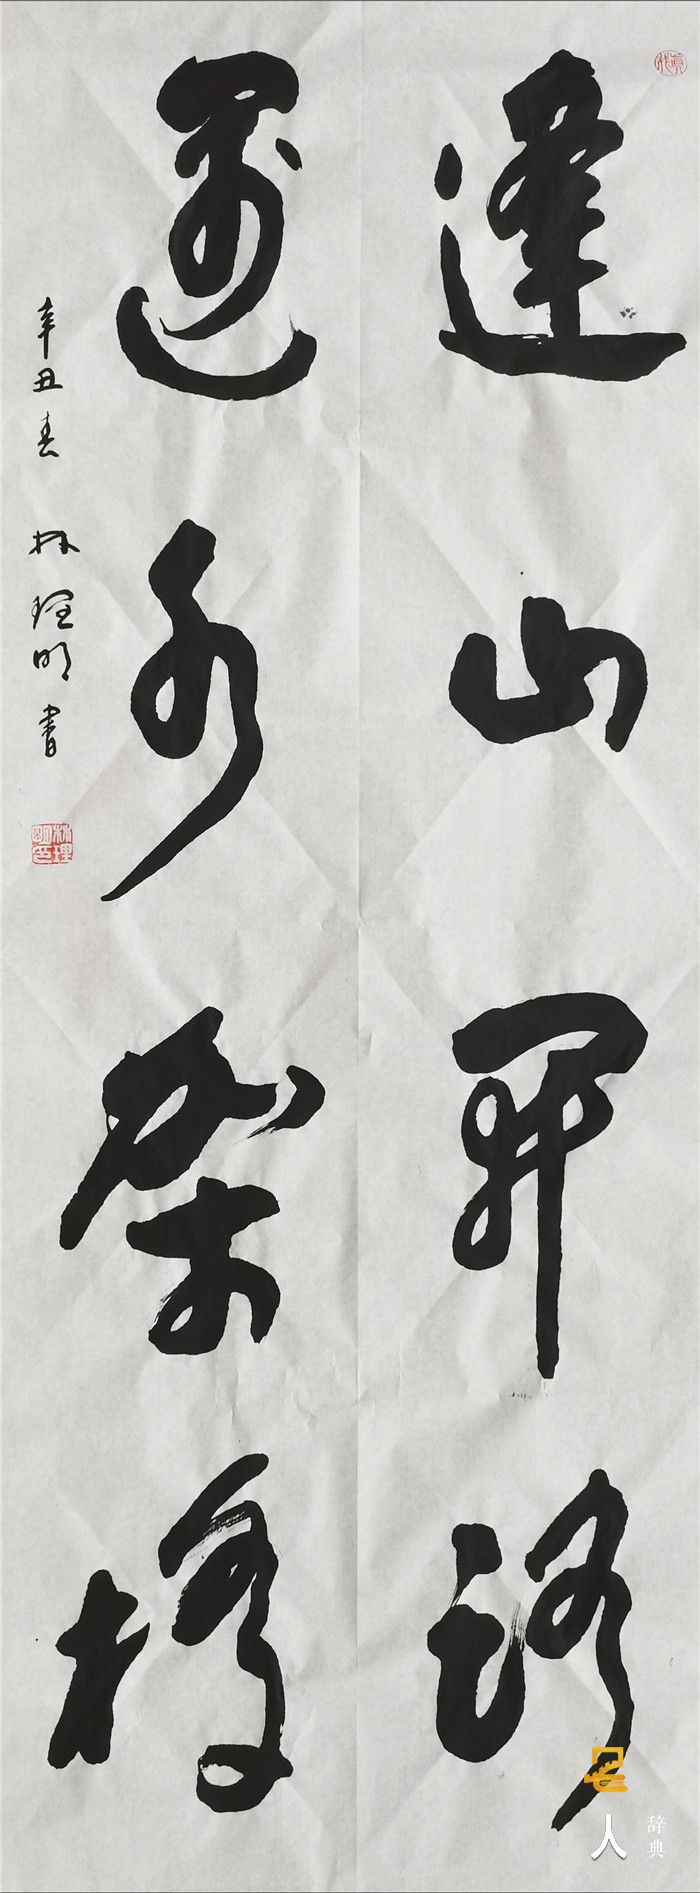 逢山開路
遇水架橋
辛丑春 林理明書
林理明印
名人辞典